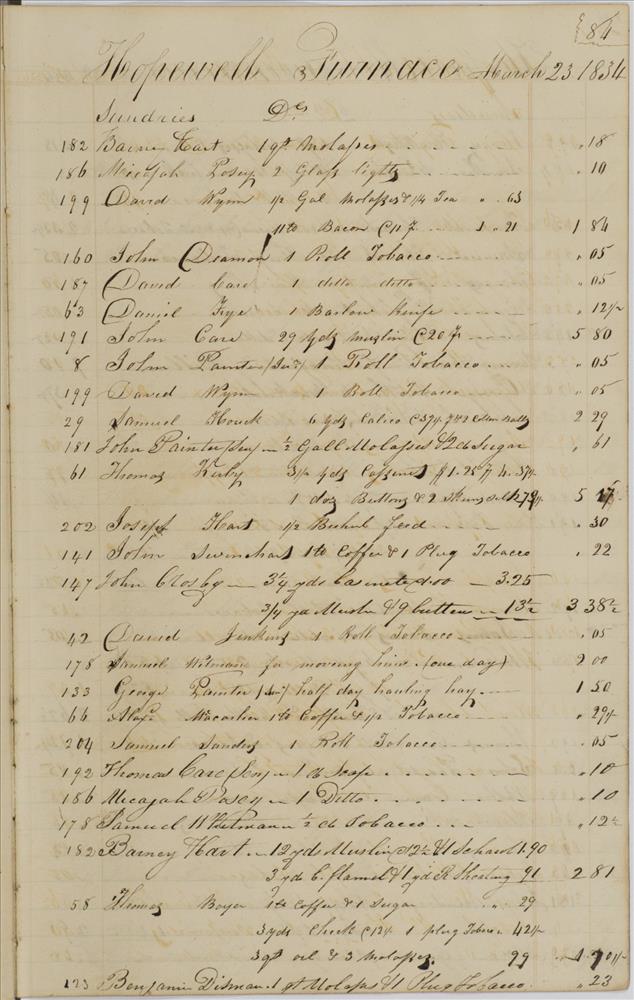 84
Hopewell Furnace March 23 1834
Sundries Drs
182 Barney Hart 1 qt Molasses " 18
186 Micajah Posey 2 Glass lights " 10
199 David Wynn 1/2 Gal Molasses & 1/4 Tea " 63
11 lb Bacon @ 11 1 " 21 1 84
160 John Deamon 1 Roll Tobacco " 05
187 David Care 1 ditto ditto " 05
63 Daniel Frye 1 Barlow Knife " 12 1/2
191 John Care 29 yds muslin @ 20 5 80
8 John Painter (Jun) 1 Roll Tobacco " 05
199 David Wynn 1 Roll Tobacco " 05
29 Samuel Houck 6 yds Calico @ 37 1/2 & 2 Cotton Balls 2 29
181 John Painter Sen 1/2 Gall Molasses & 2 lb Sugar " 61
61 Thomas Kirby 3 1/2 yds Cassinet $1.25 4.37 1/2
1 doz Buttons & 2 Skeins Silk 5
202 Joseph Hart 1/2 Bushel feed " 30
141 John Swinehart 1 lb Coffee & 1 Plug Tobacco " 22
147 John Crosby 3 1/4 yds Casinete 1.00 3.25
3/4 yd Muslin & 9 buttons 13 1/2 3 38 1/2
42 David Jenkins 1 Roll Tobacco " 05
178 Samuel Whitman for moving him (one day) 2 00
133 George Painter half day hauling hay 1 50
66 Alexr Macosker 1 lb Coffee & 1/2 Tobacco " 29 1/2
204 Samuel Sanders 1 Roll Tobacco " 05
192 Thomas Care Sen 1 lb Soap " 10
186 Micajah Posey 1 Ditto " 10
178 Samuel Whitman 1/2 lb Tobacco " 12 1/2
182 Barney Hart 12 yds Muslin @ 12 1/2 & 1 Schawl 1.90
3 yds C. flannel & 1 yd R Sheeting 91 2 81
58 Thomas Boyer 1 lb Coffee & 1 Sugar " 29
3 yds Check @ 12 1/2 1 plug Tobacco 42 1/2
3 qt oil & 3 Molasses 99 1 70 1/2
123 Benjamin Disman 1 qt Molasses & 1 Plug Tobacco " 23